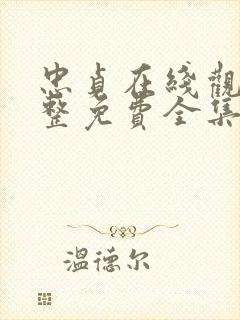 忠貞在綫觀
整免費全集
溫德尔